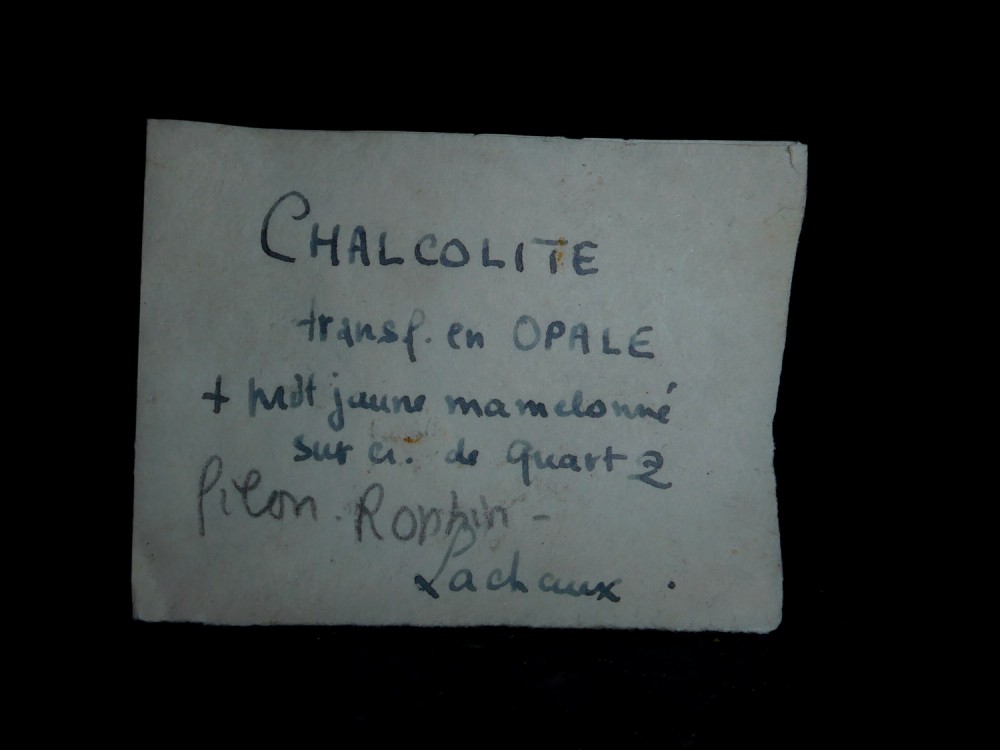 CHALCOLITE
transf. en OPALE
+ prdt jaune mamelonné
sur cr. de Quartz
filon. Rophin -
Lachaux .